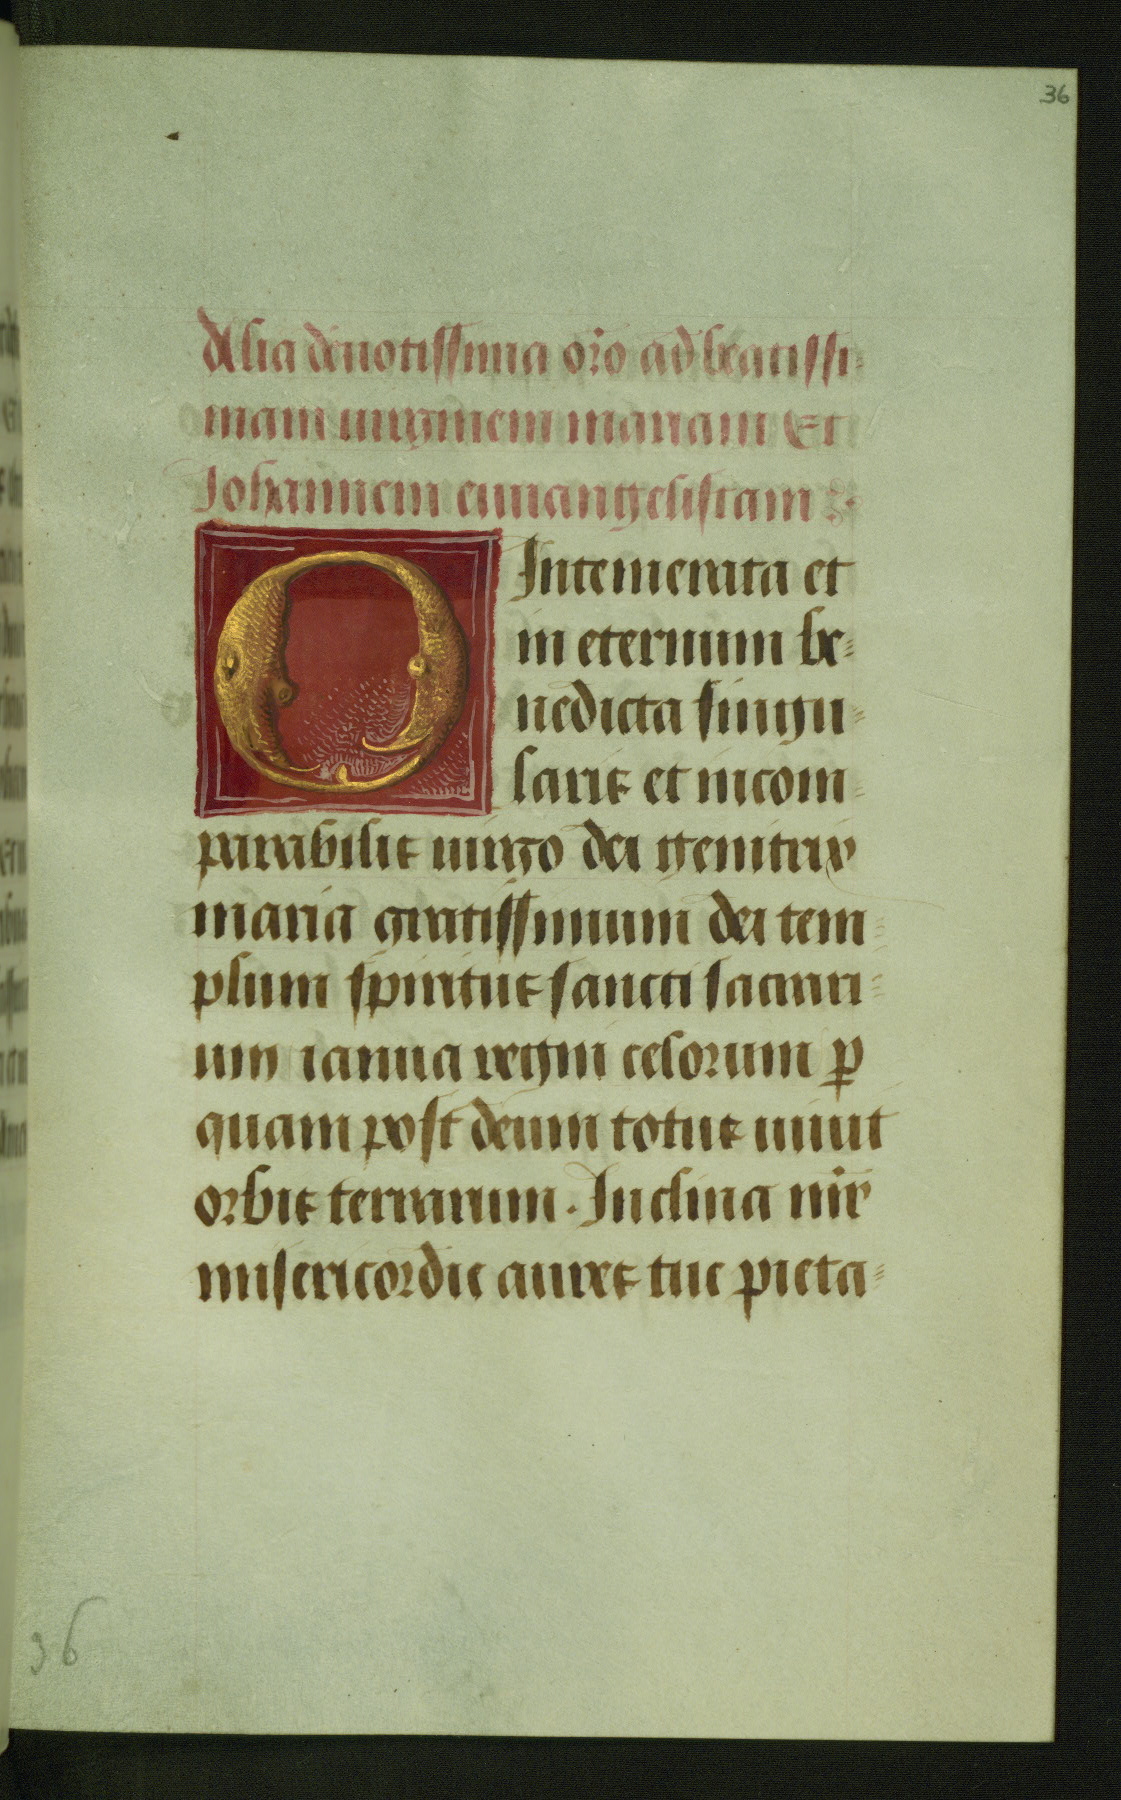 36
Alia deuotissima oro ad beatissi-
mam uirginem mariam Et
Johannem euuangelistam
O Intemerata et
in eternum be-
nedicta singu-
laris et incom-
parabilis uirgo dei genitrix
maria gratissimum dei tem-
plum spiritus sancti sacrari-
um ianua regni celorum p
quam post deum totus uiuit
orbis terrarum. Inclina mr
misericordie aures tue pieta-
36